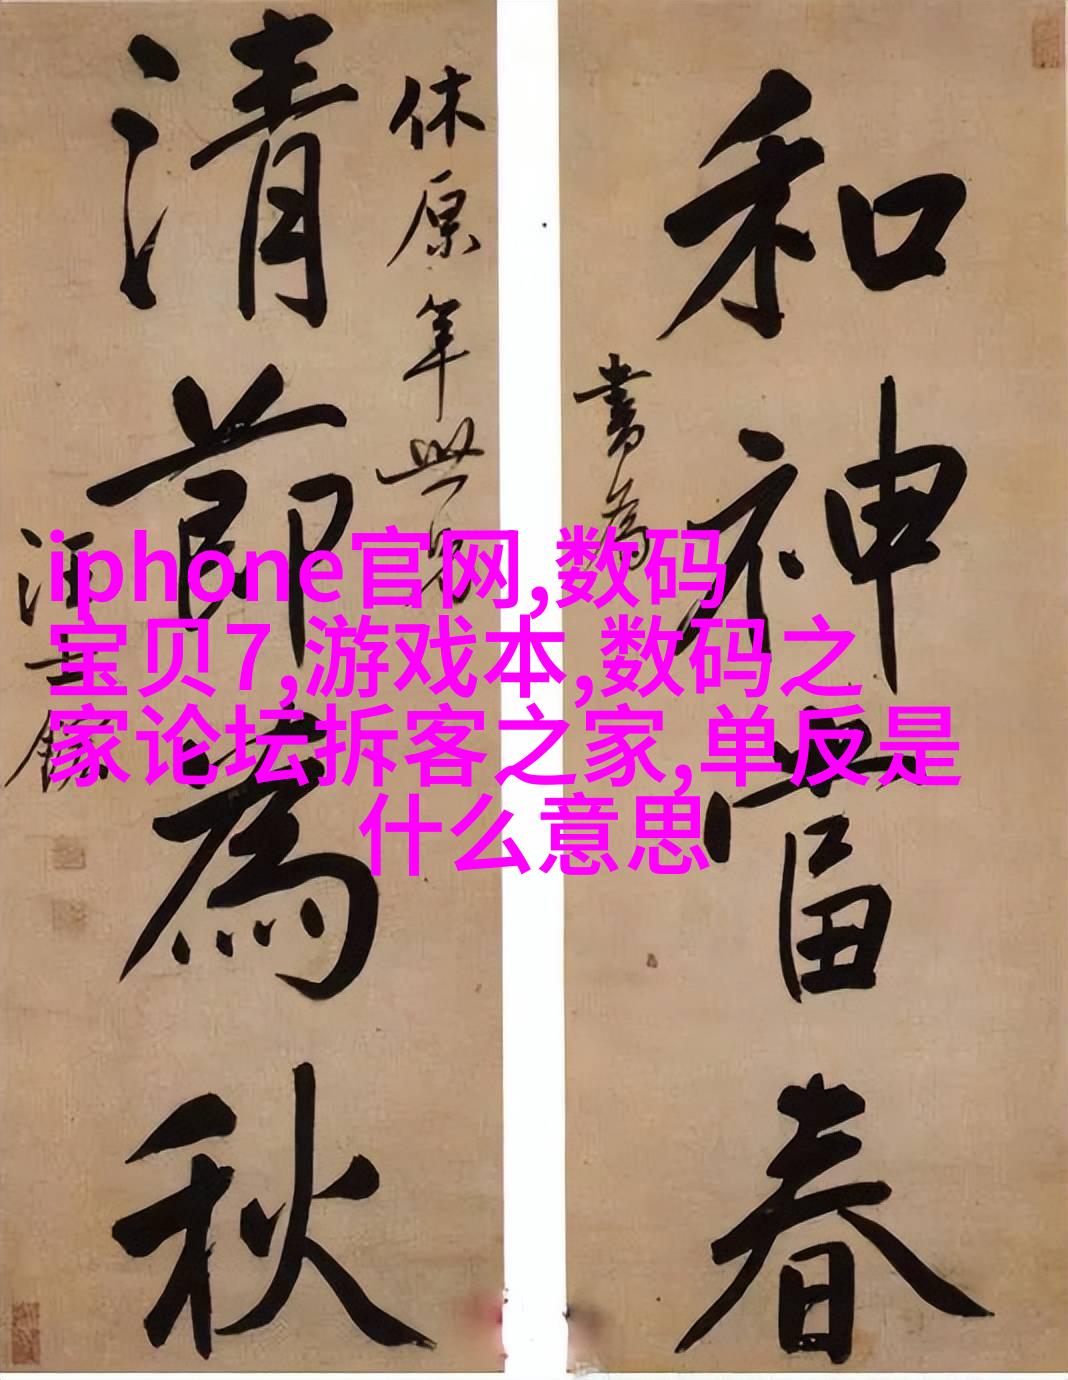 和神當春
書為
休原年世兄
清節為秋
汪士鋐
iphone官网,数码
宝贝7,游戏本,数码之
家论坛拆客之家,单反是
什么意思